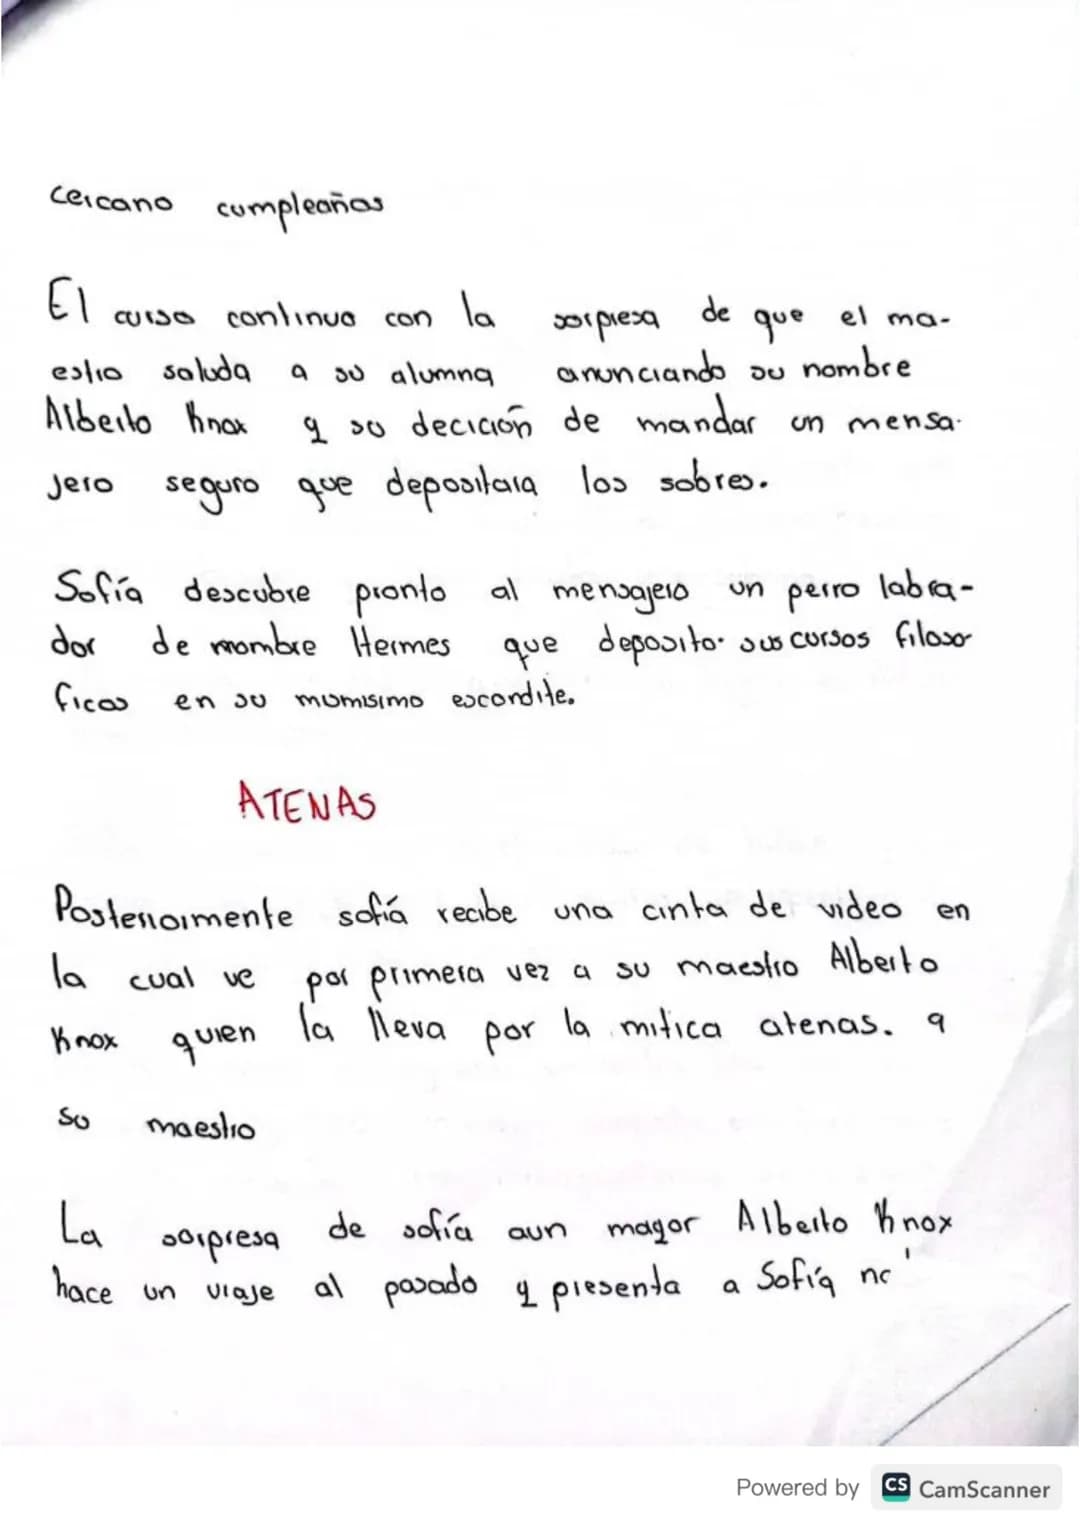 cercano cumpleaños
El curso continuo con la sorpresa de que el ma-
estro saluda a su alumna anunciando su nombre
Alberto Knox y su decición de mandar un mensa-
jero seguro que depositara los sobres.
Sofía descubre pronto al mensajero un perro labra-
dor de nombre Hermes que deposito sus cursos filoso
ficos en su mumisimo escondite.
ATENAS
Posteriormente sofía recibe una cinta de video en
la cual ve por primera vez a su maestro Alberto
Knox quien la lleva por la mitica atenas. a
su maestro
La sorpresa de sofía aun mayor Alberto Knox
hace un viaje al pasado y presenta a Sofía
Powered by CS CamScanner